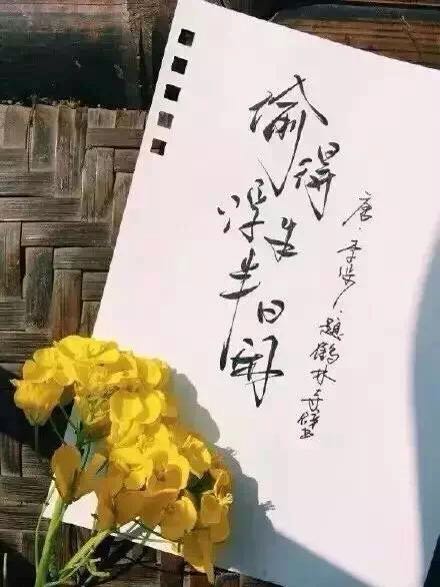 偷得浮生半日闲
唐·李涉/题鹤林寺壁